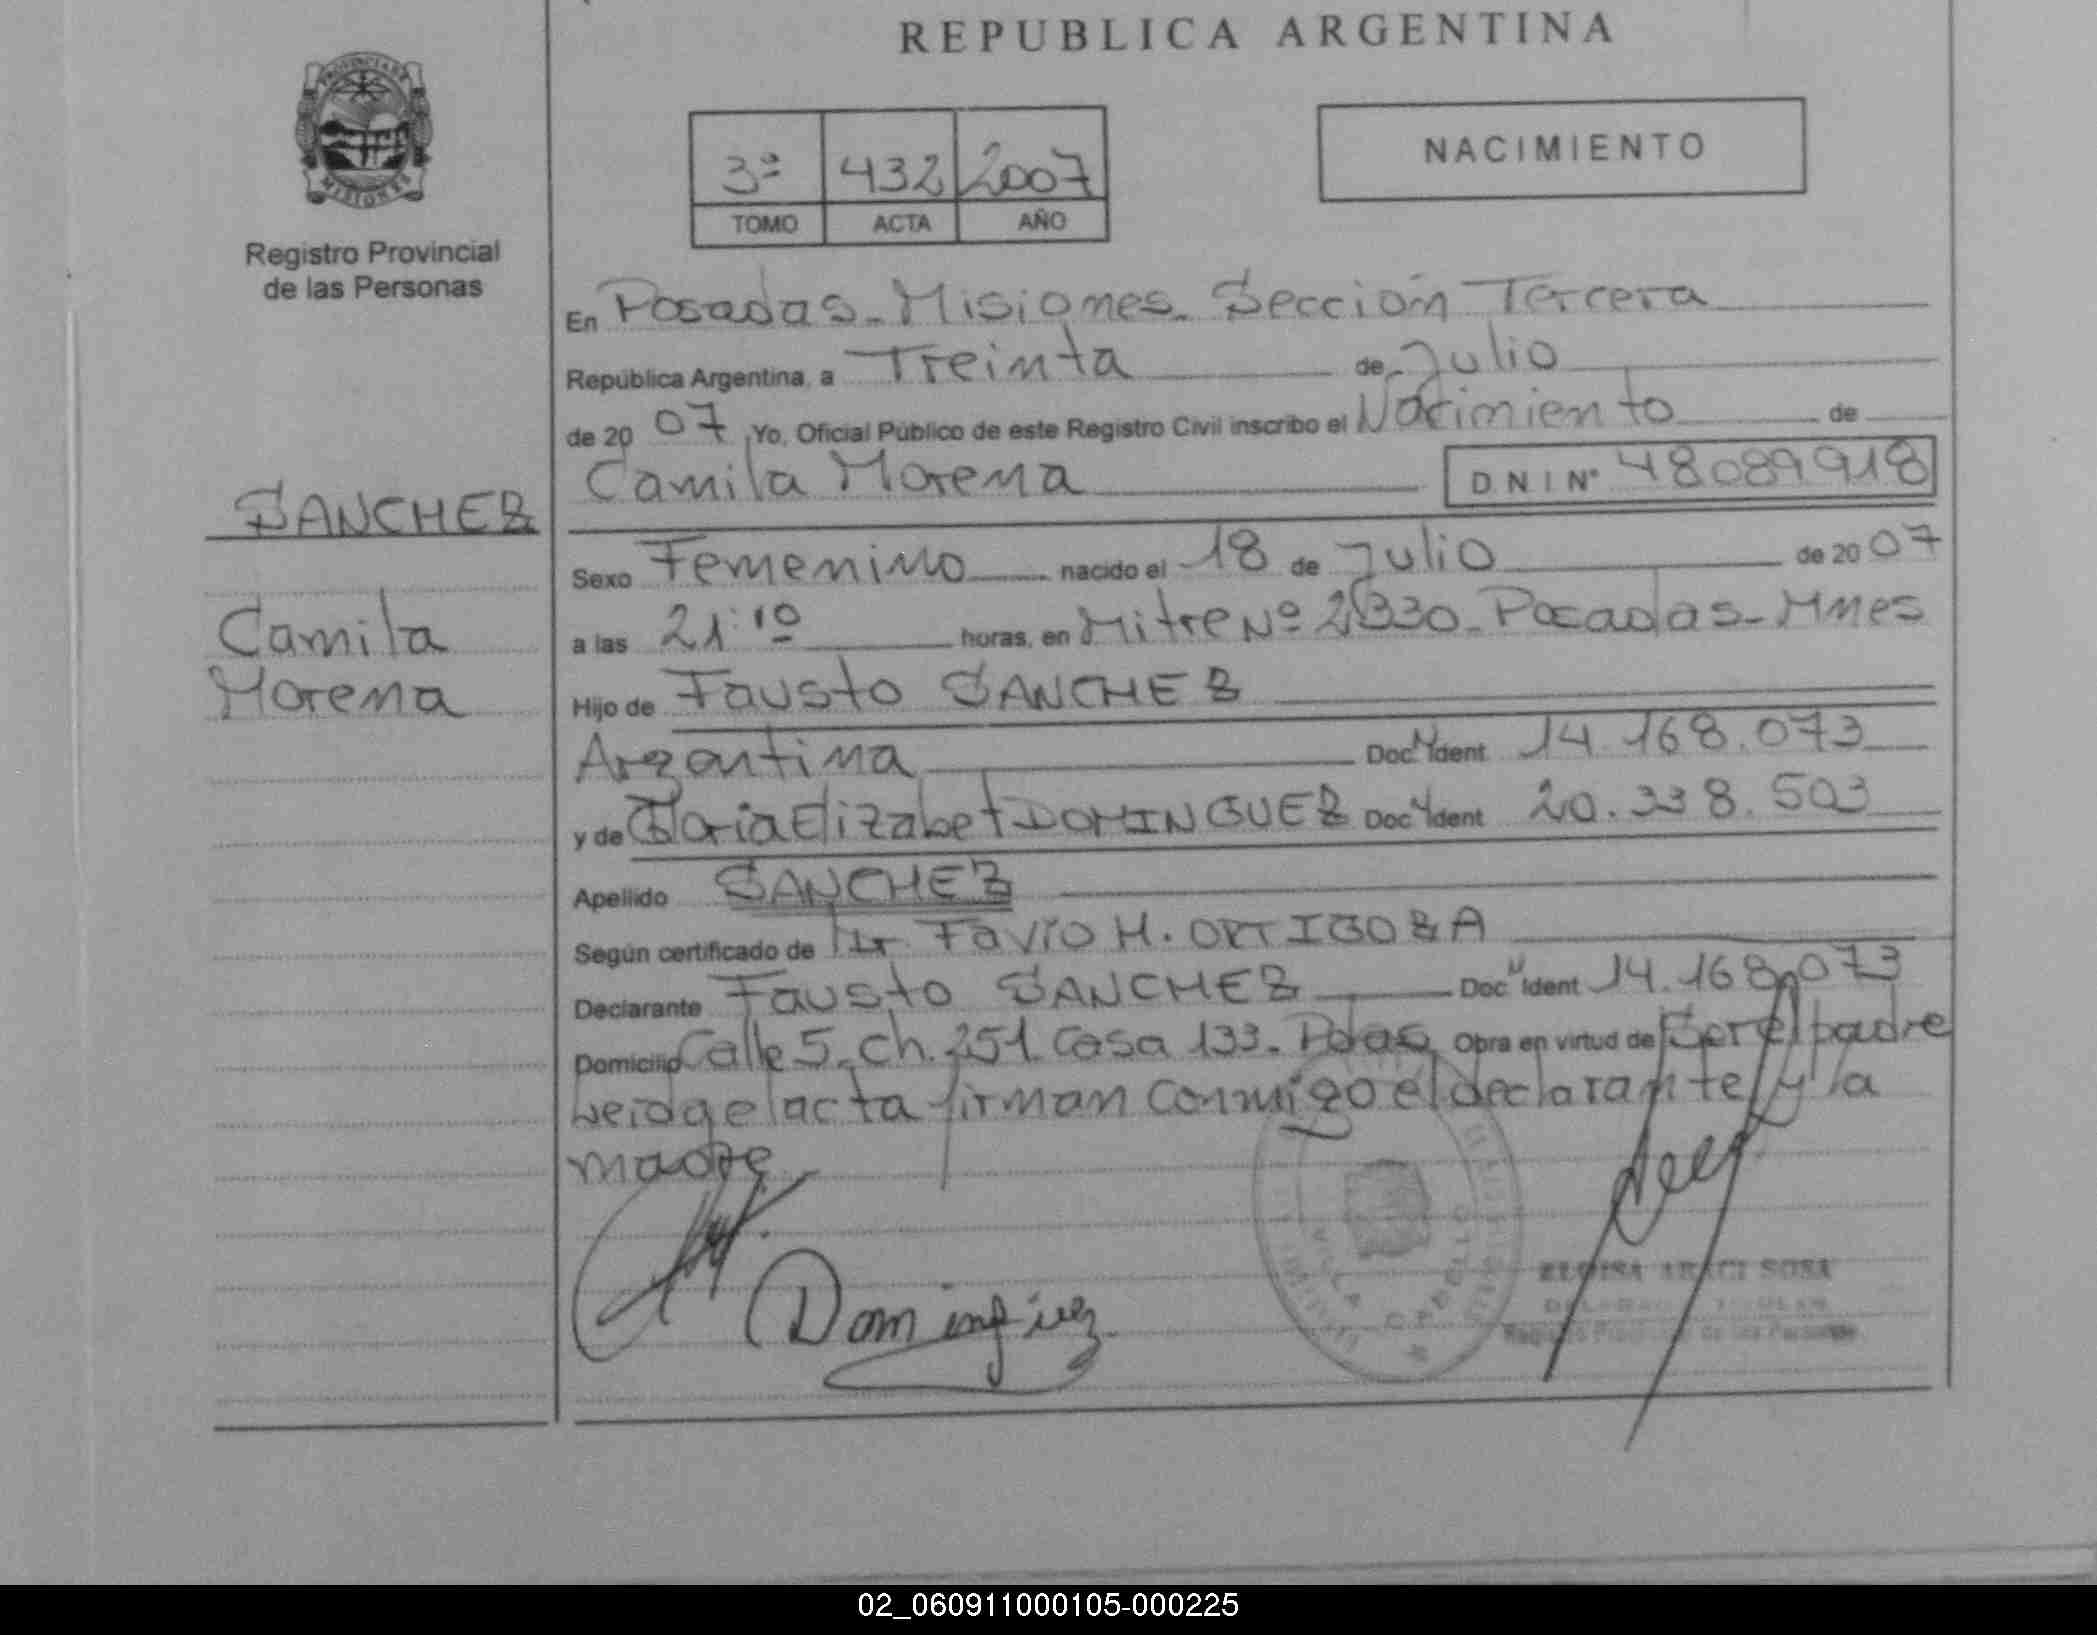 REPUBLICA ARGENTINA
PROVINCIA DE
MISIONES
Registro Provincial
de las Personas
3ª 432 2007
TOMO ACTA AÑO
NACIMIENTO
En Posadas - Misiones - Sección Tercera
República Argentina, a Treinta de Julio
de 20 07 Yo, Oficial Público de este Registro Civil inscribo el Nacimiento de
Camila Morena DNI Nº 48089918
SANCHEZ
Camila
Morena
Sexo Femenino nacido el 18 de Julio de 20 07
a las 21:10 horas, en Mitre Nº 2330 - Posadas - Mnes
Hijo de Fausto SANCHEZ
Argentina Doc Ident 14.168.073
y de Gloria Elizabet DOMINGUEZ Doc Ident 20.338.503
Apellido SANCHEZ
Según certificado de Favio H. ORTIGOZA
Declarante Fausto SANCHEZ Doc Ident 14.168.073
Domicilio Calle 5 - Ch. 251 Casa 133 - Pdas Obra en virtud de Ser el padre
Leida el acta firman conmigo el declarante y la
madre
Dominguez
VILLA CABELLO
ELOISA ARACI SOSA
Registro Provincial de las Personas
02_060911000105-000225